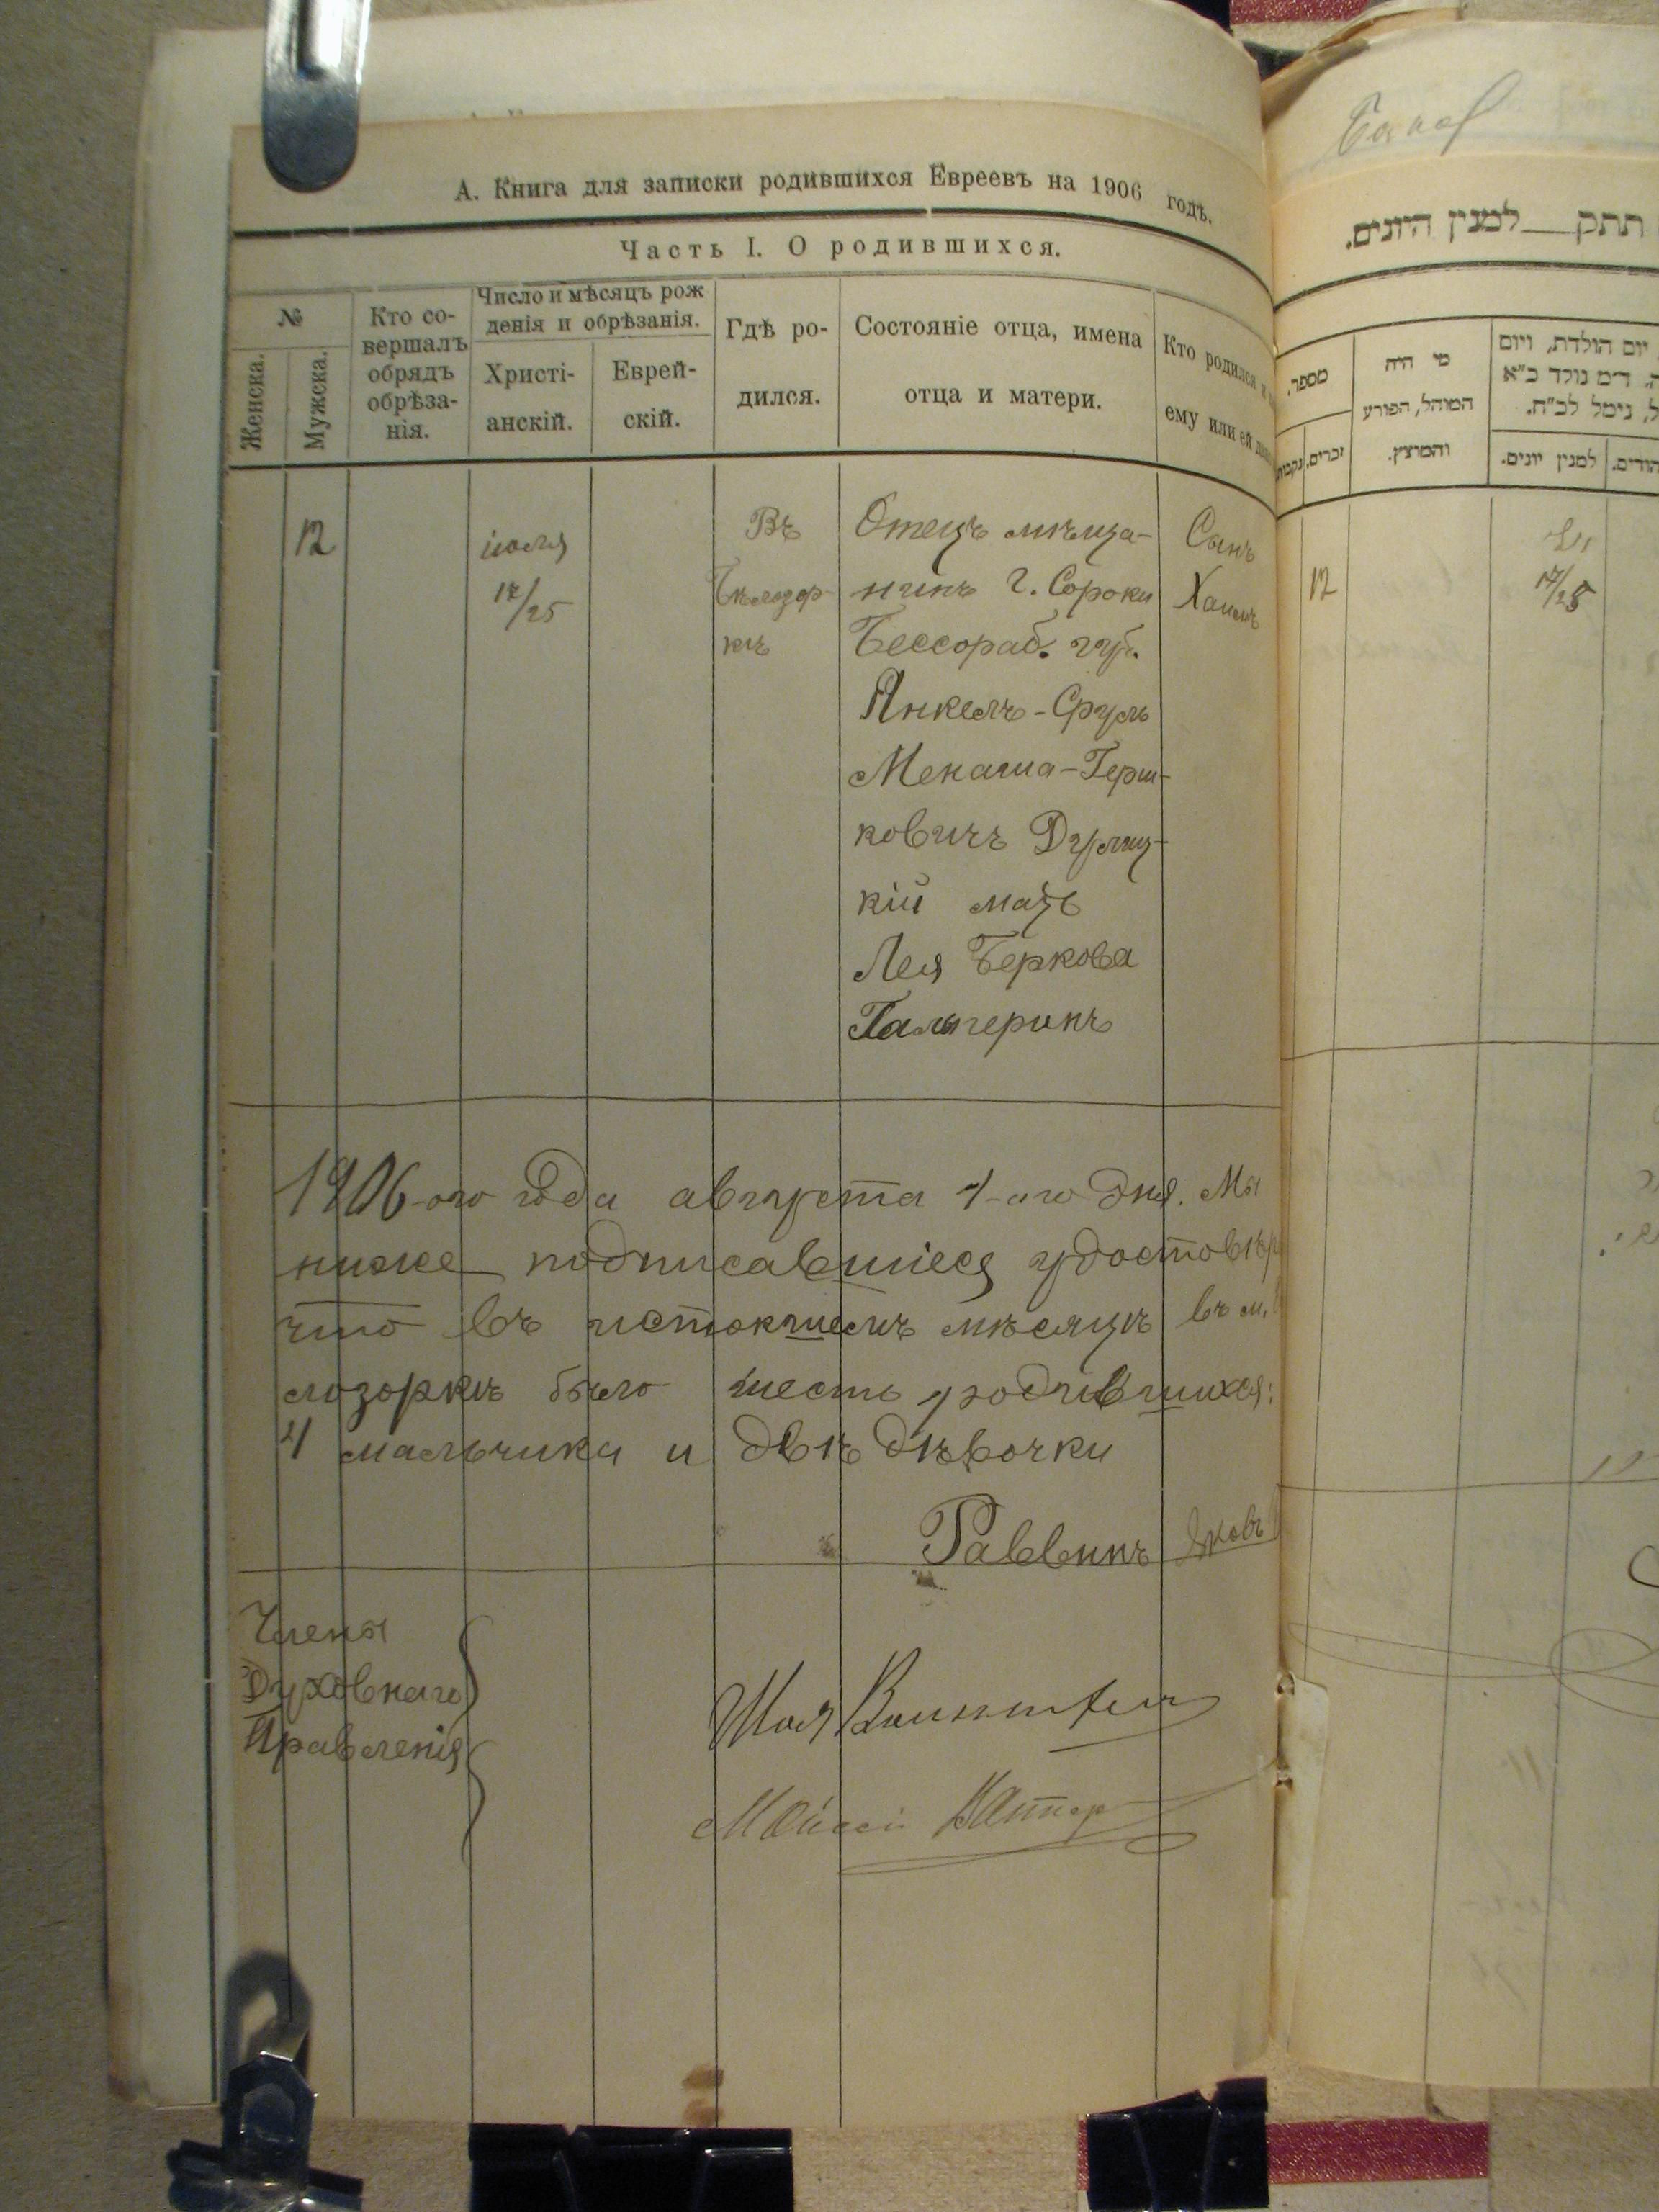 А. Книга для записки родившихся Евреевъ на 1906 годъ.
Часть I. О родившихся.
№
Женска.
Мужска.
Кто со-
вершалъ
обрядъ
обрѣза-
нія.
Число и мѣсяцъ рож
денія и обрѣзанія.
Христі-
анскій.
Еврей-
скій.
Гдѣ ро-
дился.
Состояніе отца, имена
отца и матери.
Кто родился и
ему или ей
12
іюля
17/25
Въ
Бѣлозор-
кѣ
Отецъ мѣща-
нинъ г. Сороки
Бессораб. губ.
Янкель-Сруль
Менаша-Герш-
ковичъ Дулиц-
кій мать
Лея Беркова
Гальперинъ
Сынъ
Хаимъ
1906-ого года августа 1-ого дня. Мы
ниже подписавшіеся удостовѣр
что въ истокшемъ мѣсяцѣ въ м.
лозоркѣ было шесть родившихся:
4 мальчика и двѣ дѣвочки
Раввинъ Яковъ
Члены
Духовнаго
Правленія
Шая Ваинштеин
תתק למנין היונים.
מספר.
זכרים.
נקבות
מי היה
המוהל, הפורע
והמוצץ.
יום הולדת, ויום
ד״מ נולד כ״א
נימל לכ״ח.
למנין יונים.
12
17/25